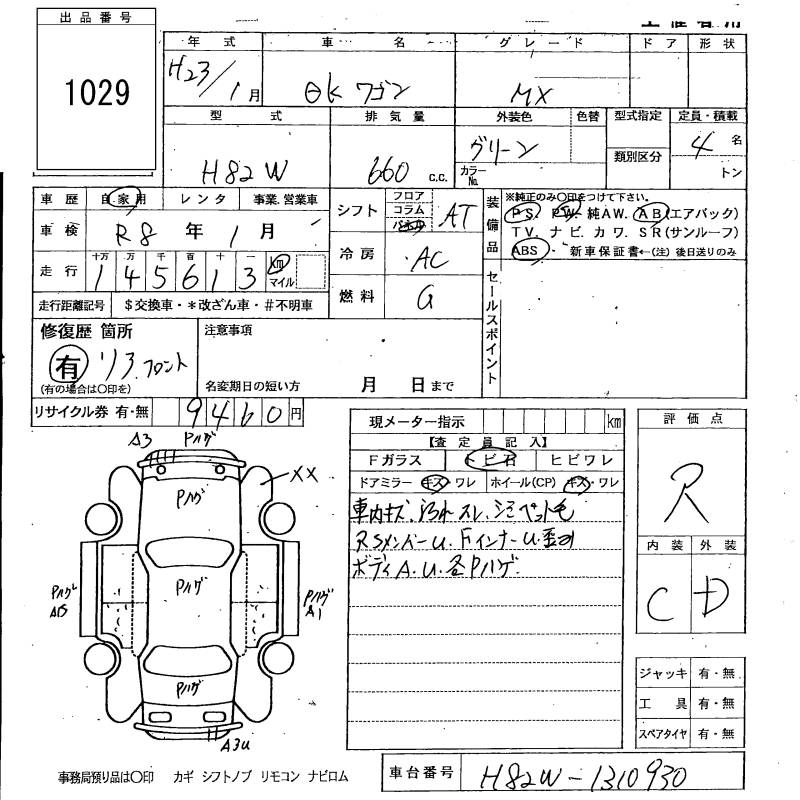 出品番号
1029
年式 車名 グレード ドア 形状
H23/1月 eKワゴン MX
型式 排気量 外装色 色替 型式指定 定員・積載
H82W 660 c.c. グリーン カラーNo. 類別区分 4名 トン
車歴 自家用 レンタ 事業.営業車
車検 R8年 1月
走行 十万 万 千 百 十 一 km マイル
145613
走行距離記号 $交換車・*改ざん車・#不明車
シフト フロア コラム AT
冷房 AC
燃料 G
装備品 ※純正のみ〇印をつけて下さい。
PS. PW. 純AW. AB(エアバック)
TV. ナビ. カワ. SR(サンルーフ)
ABS・ 新車保証書←(注)後日送りのみ
セールスポイント
修復歴 箇所
有 リア.フロント
(有の場合は〇印を)
注意事項
名変期日の短い方 月 日まで
リサイクル券 有・無 9460円
現メーター指示 km
【査定員記入】
Fガラス トビ石 ヒビワレ
ドアミラー キズ・ワレ ホイール(CP) キズ・ワレ
車内キズ.汚れ スレ.シミ ペット毛
RSメンバーU.FインナーU.歪み
ボディA.U.各Pハゲ.
評価点
R
内装 外装
C D
ジャッキ 有・無
工具 有・無
スペアタイヤ 有・無
A3 Pハゲ
XX
Pハゲ
Pハゲ
Pハゲ
Pハゲ A1
Pハゲ
A3U
事務局預り品は〇印 カギ シフトノブ リモコン ナビロム
車台番号 H82W-1310930